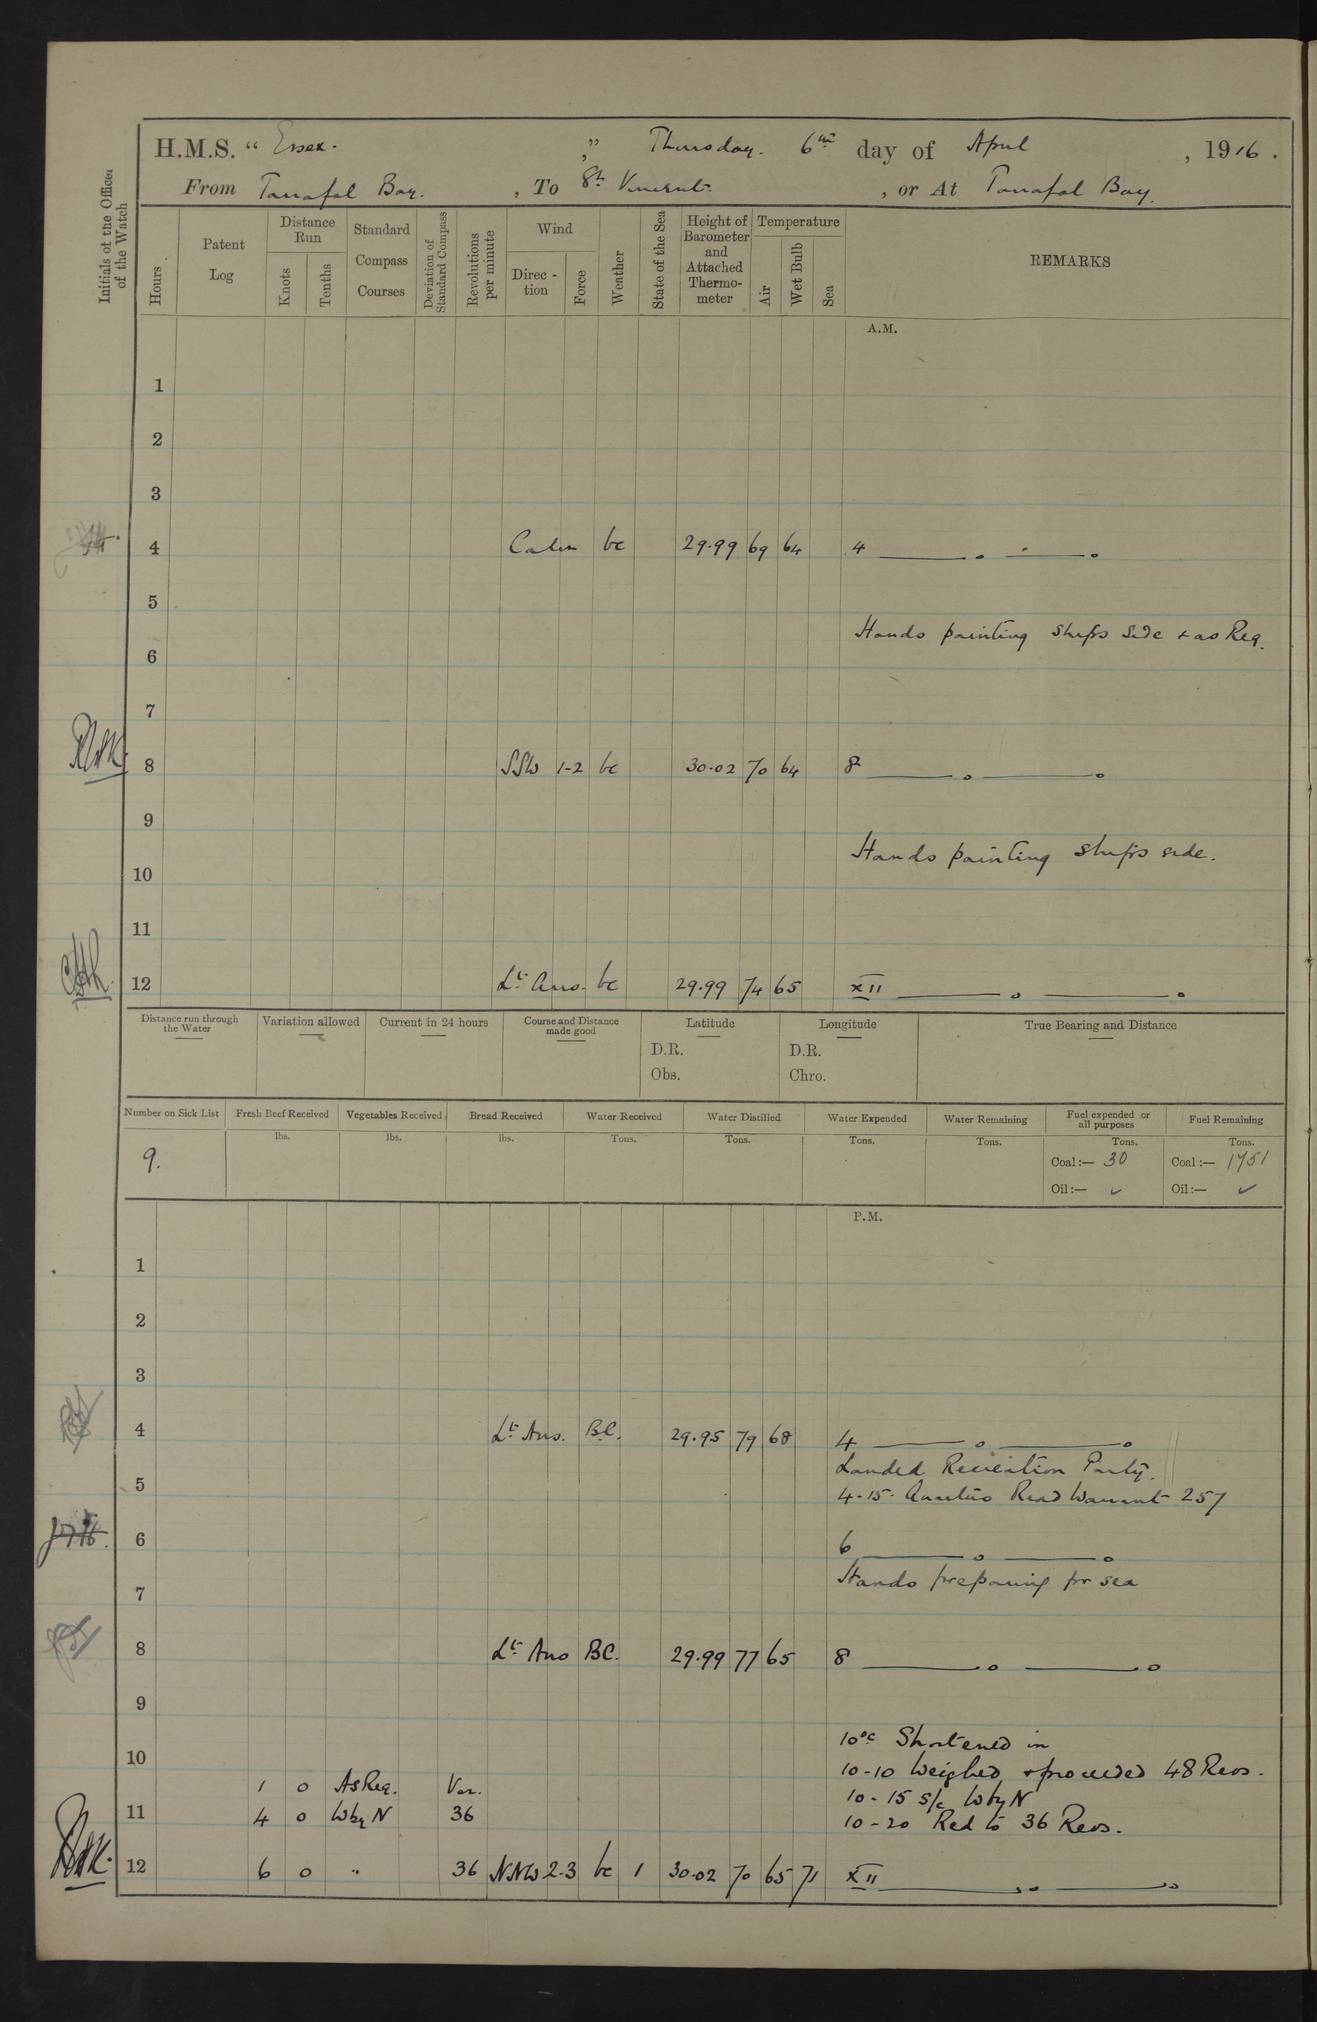 H.M.S. " Essex. " Thursday. 6th day of April , 1916.
From Tarrafal Bay. , To St Vincent. , or At Tarrafal Bay.
Initials of the Officer of the Watch
Hours
Patent Log
Distance Run
Knots
Tenths
Standard Compass Courses
Deviation of Standard Compass
Revolutions per minute
Wind
Direc-tion
Force
Weather
State of the Sea
Height of Barometer and Attached Thermo-meter
Temperature
Air
Wet Bulb
Sea
REMARKS
A.M.
1
2
3
4 Calm bc 29.99 69 64 4
5
Hands painting ships side + as Req.
6
7
8 SSW 1-2 bc 30.02 70 64 8
9
Hands painting ships side.
10
11
12 Lt Airs. bc 29.99 74 65 XII
Distance run through the Water
Variation allowed
Current in 24 hours
Course and Distance made good
Latitude
D.R.
Obs.
Longitude
D.R.
Chro.
True Bearing and Distance
Number on Sick List
Fresh Beef Received
Vegetables Received
Bread Received
Water Received
Water Distilled
Water Expended
Water Remaining
Fuel expended or all purposes
Fuel Remaining
lbs. lbs. lbs. Tons. Tons. Tons. Tons. Tons. Tons.
9. Coal:— 30 Coal:— 1751
Oil:— ✓ Oil:— ✓
P.M.
1
2
3
4 Lt Airs. B.C. 29.95 79 68 4
Landed Recreation Party.
5 4-15. Quarters Read Warrant 257
6 6
Hands preparing for sea
7
8 Lt Airs BC. 29.99 77 65 8
9
10.0 Shortened in
10 10-10 Weighed + proceeded 48 Revs.
1 0 As Req. Var. 10-15 S/c W by N
11 4 0 W by N 36 10-20 Red to 36 Revs.
12 6 0 " 36 NNW 2-3 bc 1 30.02 70 65 71 XII